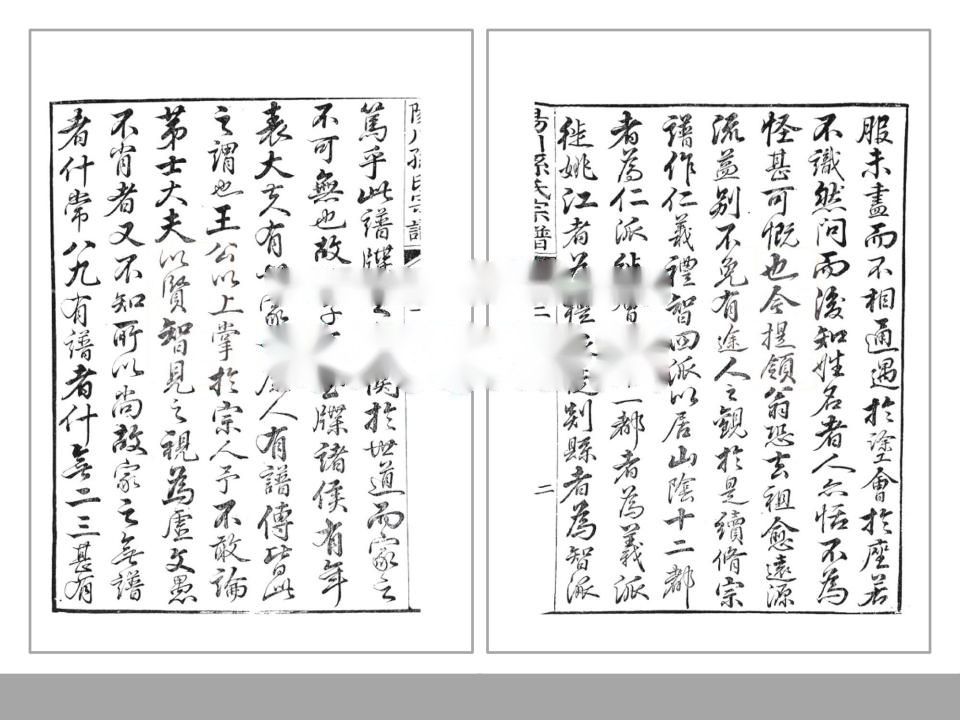 服未盡而不相通遇於塗會於座若
不識然問而後知姓名者人亦恬不為
怪甚可慨也今提領翁恐去祖愈遠源
流益别不免有途人之觀於是續脩宗
譜作仁義禮智四派以居山陰十二都
者為仁派 一都者為義派
徙姚江者為禮 剡縣者為智派
易川孫氏宗譜
二
孫氏宗譜
篤乎此譜牒之 関於世道而家之
不可無也故 牒諸侯有年
表大夫有 家 人有譜傳皆此
之謂也王公以上掌於宗人予不敢論
苐士大夫以賢智見之視為虛文愚
不肖者又不知所以尚故家之無譜
者什常八九有譜者什無二三甚有